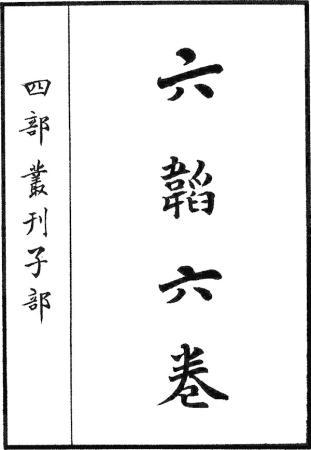 六韜六卷
四部叢刊子部